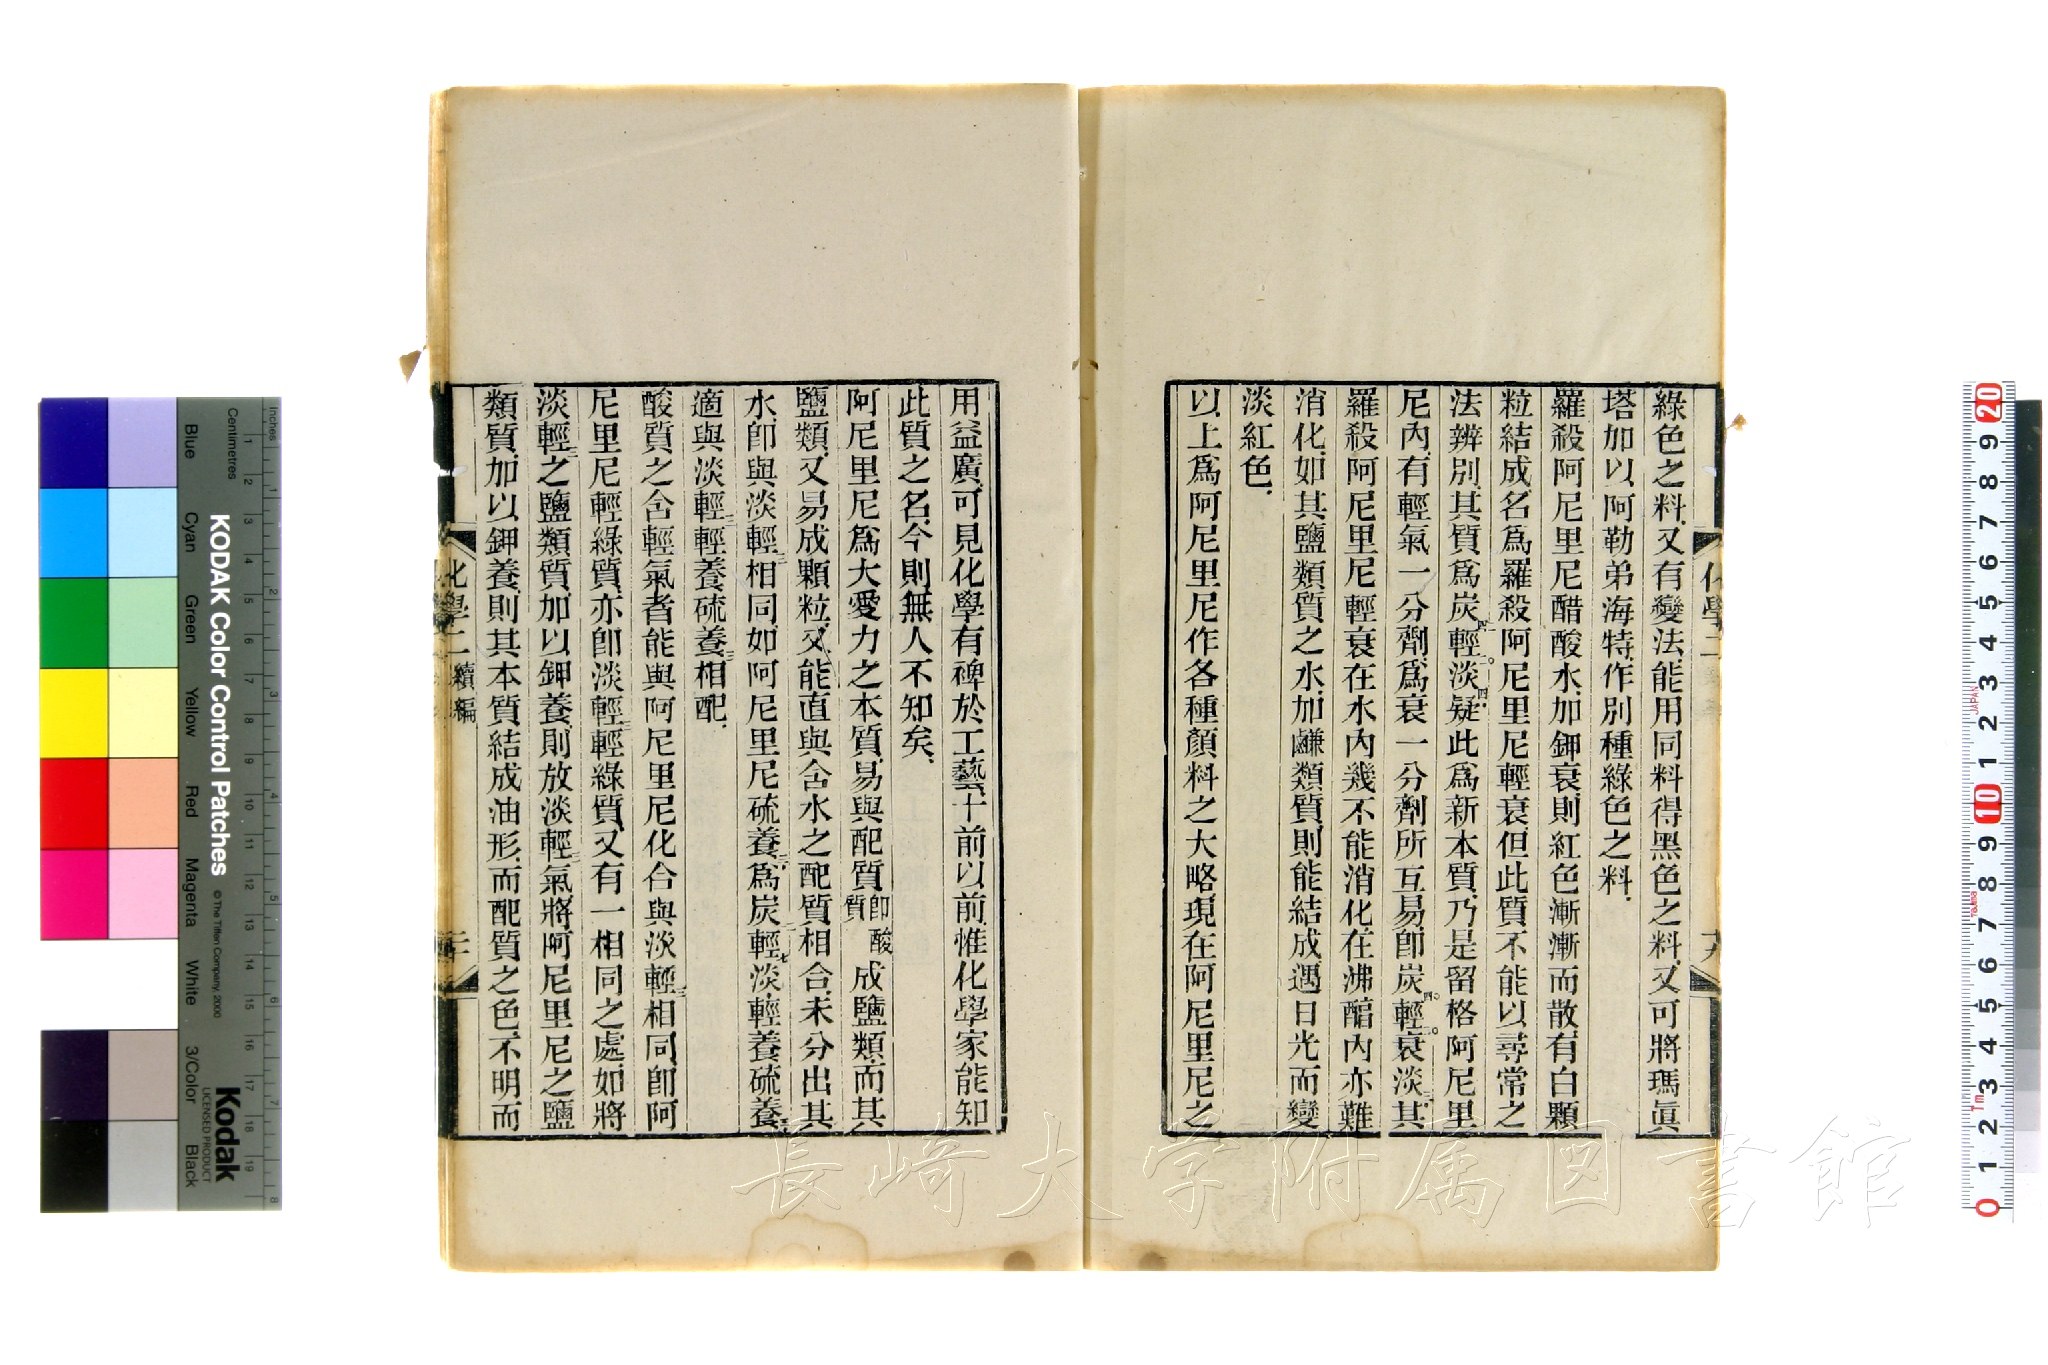 綠色之料、又有變法、能用同料得黑色之料、又可將瑪眞
塔加以阿勒弟海特、作別種綠色之料、
羅殺阿尼里尼醋酸水、加鉀衰則紅色漸漸而散、有白顆
粒結成、名爲羅殺阿尼里尼輕衰、但此質不能以尋常之
法辨別、其質爲炭輕淡、疑此爲新本質、乃是留格阿尼里
尼內、有輕氣一分劑、爲衰一分劑所互易、卽炭輕衰淡、其
羅殺阿尼里尼輕衰在水內幾不能消化、在沸醕內亦難
消化、如其鹽類質之水、加鹻類質、則能結成、遇日光而變
淡紅色、
以上爲阿尼里尼作各種顏料之大略、現在阿尼里尼之
用益廣、可見化學有裨於工藝、十前以前惟化學家能知
此質之名、今則無人不知矣、
阿尼里尼爲大愛力之本質、易與配質卽酸質成鹽類、而其
鹽類、又易成顆粒、又能直與含水之配質相合、未分出其
水、卽與淡輕三相同、如阿尼里尼硫養三爲炭輕七淡輕養硫養三
適與淡輕三輕養硫養三相配、
酸質之含輕氣者、能與阿尼里尼化合、與淡輕三相同、卽阿
尼里尼輕綠質、亦卽淡輕三輕綠質、又有一相同之處、如將
淡輕三之鹽類質、加以鉀養、則放淡輕三氣、將阿尼里尼之鹽
類質、加以鉀養、則其本質結成油形、而配質之色不明、而
化學二
化學二 續編
KODAK Color Control Patches
© The Tiffen Company, 2000
Kodak
LICENSED PRODUCT
Inches
Centimetres
Blue
Cyan
Green
Yellow
Red
Magenta
White
3/Color
Black
JAPAN
長崎大学附属図書館